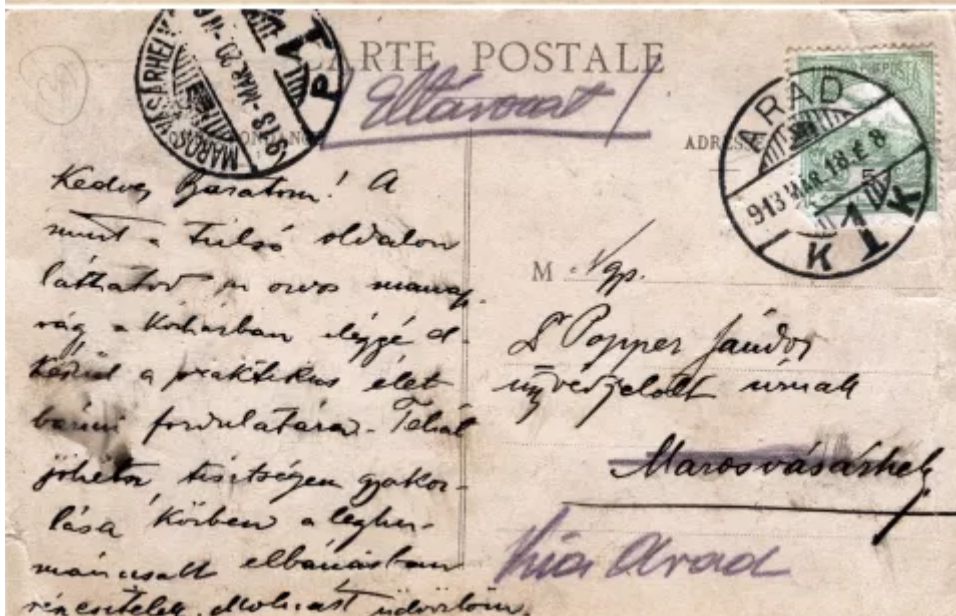 CARTE POSTALE
Eltávozott
MAROSVÁSÁRHELY
913 MAR. 20
P
ADRESSE
ARAD
913 MÁR. 18. E 8
K 1 K
Kedves Barátom! A
mint a túlsó oldalon
láthatod az orvos manap-
ság a kórházban eléggé el-
készül a praktikus élet
bármi fordulatára. Tehát
jöhetsz tisztségem gyakor-
lása körben a leghu-
mánusabb elbánásban
részesítelek. üdvözlöm.
M Ngs.
Dr Popper Sándor
ügyvédjelölt urnak
Marosvásárhely
Arad